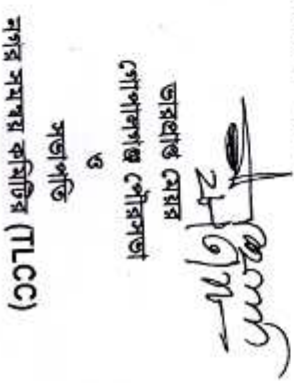 ভারপ্রাপ্ত মেয়র
গোপালগঞ্জ পৌরসভা
ও
সভাপতি
নগর সমন্বয় কমিটির (TLCC)